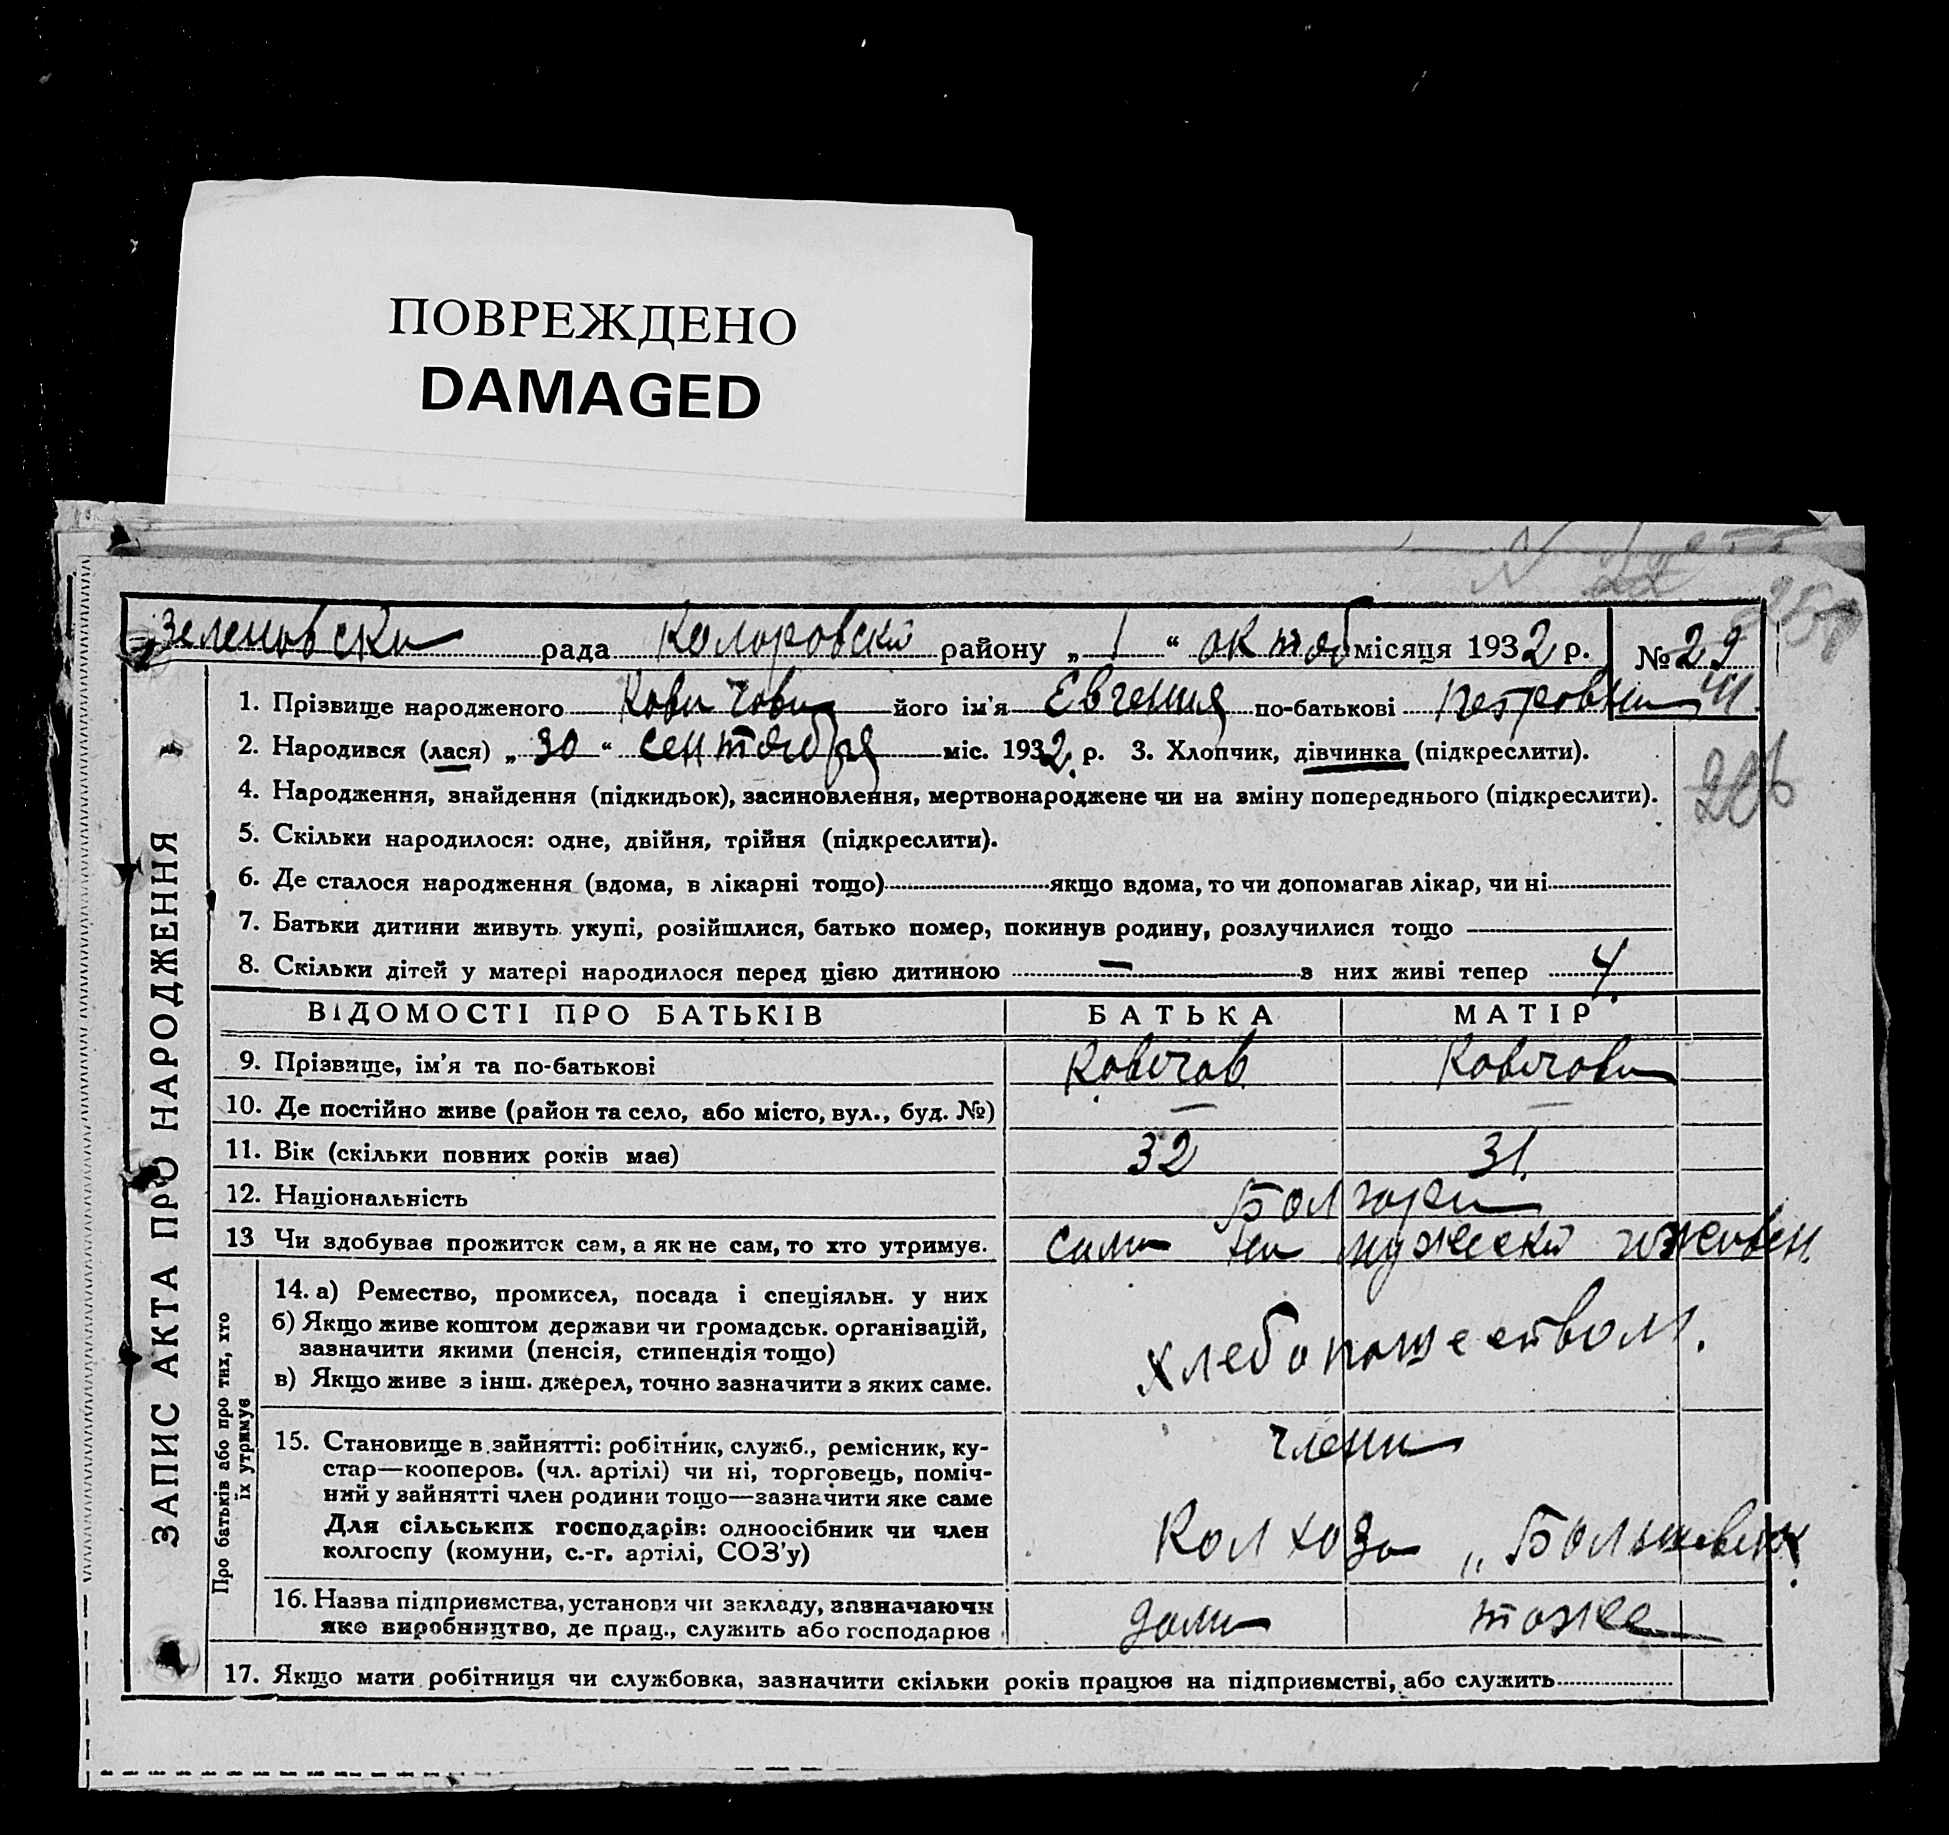 ПОВРЕЖДЕНО
DAMAGED
рада Коларовски району „ 1 “ октяб місяця 1932 р. № 29
1. Прізвище народженого його ім'я Евгения по-батькові Петровна
2. Народився (лася) „ 30 “ сентября міс. 1932 р. 3. Хлопчик, дівчинка (підкреслити).
206
4. Народження, знайдення (підкидьок), засиновлення, мертвонароджене чи на зміну попереднього (підкреслити).
5. Скільки народилося: одне, двійня, трійня (підкреслити).
6. Де сталося народження (вдома, в лікарні тощо) якщо вдома, то чи допомагав лікар, чи ні
7. Батьки дитини живуть укупі, розійшлися, батько помер, покинув родину, розлучилися тощо
8. Скільки дітей у матері народилося перед цією дитиною — з них живі тепер 4
ЗАПИС АКТА ПРО НАРОДЖЕННЯ
ВІДОМОСТІ ПРО БАТЬКІВ БАТЬКА МАТІР
9. Прізвище, ім'я та по-батькові
10. Де постійно живе (район та село, або місто, вул., буд. №) — —
11. Вік (скільки повних років має) 32 31.
12. Національність Болгари
13 Чи здобував прожиток сам, а як не сам, то хто утримує. сами
Про батьків або про тих, хто
їх утримує
14. а) Ремество, промисел, посада і спеціяльн. у них
б) Якщо живе коштом держави чи громадськ. організацій,
зазначити якими (пенсія, стипендія тощо)
в) Якщо живе з інш. джерел, точно зазначити з яких саме.
хлебопашеством.
15. Становище в зайнятті: робітник, служб., ремісник, ку-
стар—кооперов. (чл. артілі) чи ні, торговець, поміч-
ний у зайнятті член родини тощо—зазначити яке саме
Для сільських господарів: одноосібник чи член
колгоспу (комуни, с.-г. артілі, СОЗ'у)
члены
Колхоза „Большевик
16. Назва підприємства, установи чи закладу, зазначаючи
яке виробництво, де прац., служить або господарює
тоже
17. Якщо мати робітниця чи службовка, зазначити скільки років працює на підприємстві, або служить